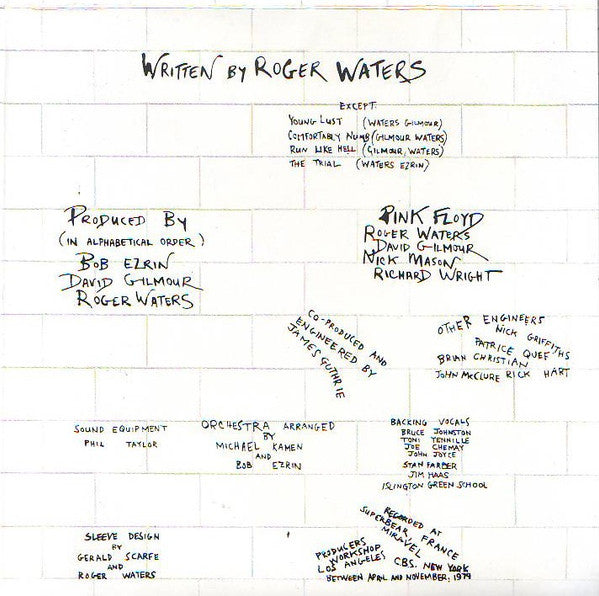 WRITTEN BY ROGER WATERS
EXCEPT:
YOUNG LUST (WATERS GILMOUR)
COMFORTABLY NUMB (GILMOUR WATERS)
RUN LIKE HELL (GILMOUR, WATERS)
THE TRIAL (WATERS EZRIN)
PRODUCED BY
(IN ALPHABETICAL ORDER)
BOB EZRIN
DAVID GILMOUR
ROGER WATERS
PINK FLOYD
ROGER WATERS
DAVID GILMOUR
NICK MASON
RICHARD WRIGHT
CO-PRODUCED AND
ENGINEERED BY
JAMES GUTHRIE
OTHER ENGINEERS
NICK GRIFFITHS
PATRICE QUEF
BRIAN CHRISTIAN
JOHN McCLURE RICK HART
SOUND EQUIPMENT
PHIL TAYLOR
ORCHESTRA ARRANGED
BY
MICHAEL KAMEN
AND
BOB EZRIN
BACKING VOCALS
BRUCE JOHNSTON
TONI TENNILLE
JOE CHEMAY
JOHN JOYCE
STAN FARBER
JIM HAAS
ISLINGTON GREEN SCHOOL
SLEEVE DESIGN
BY
GERALD SCARFE
AND
ROGER WATERS
RECORDED AT
SUPERBEAR, FRANCE
MIRAVEL
PRODUCERS
WORKSHOP
LOS ANGELES CBS. NEW YORK
BETWEEN APRIL AND NOVEMBER, 1979